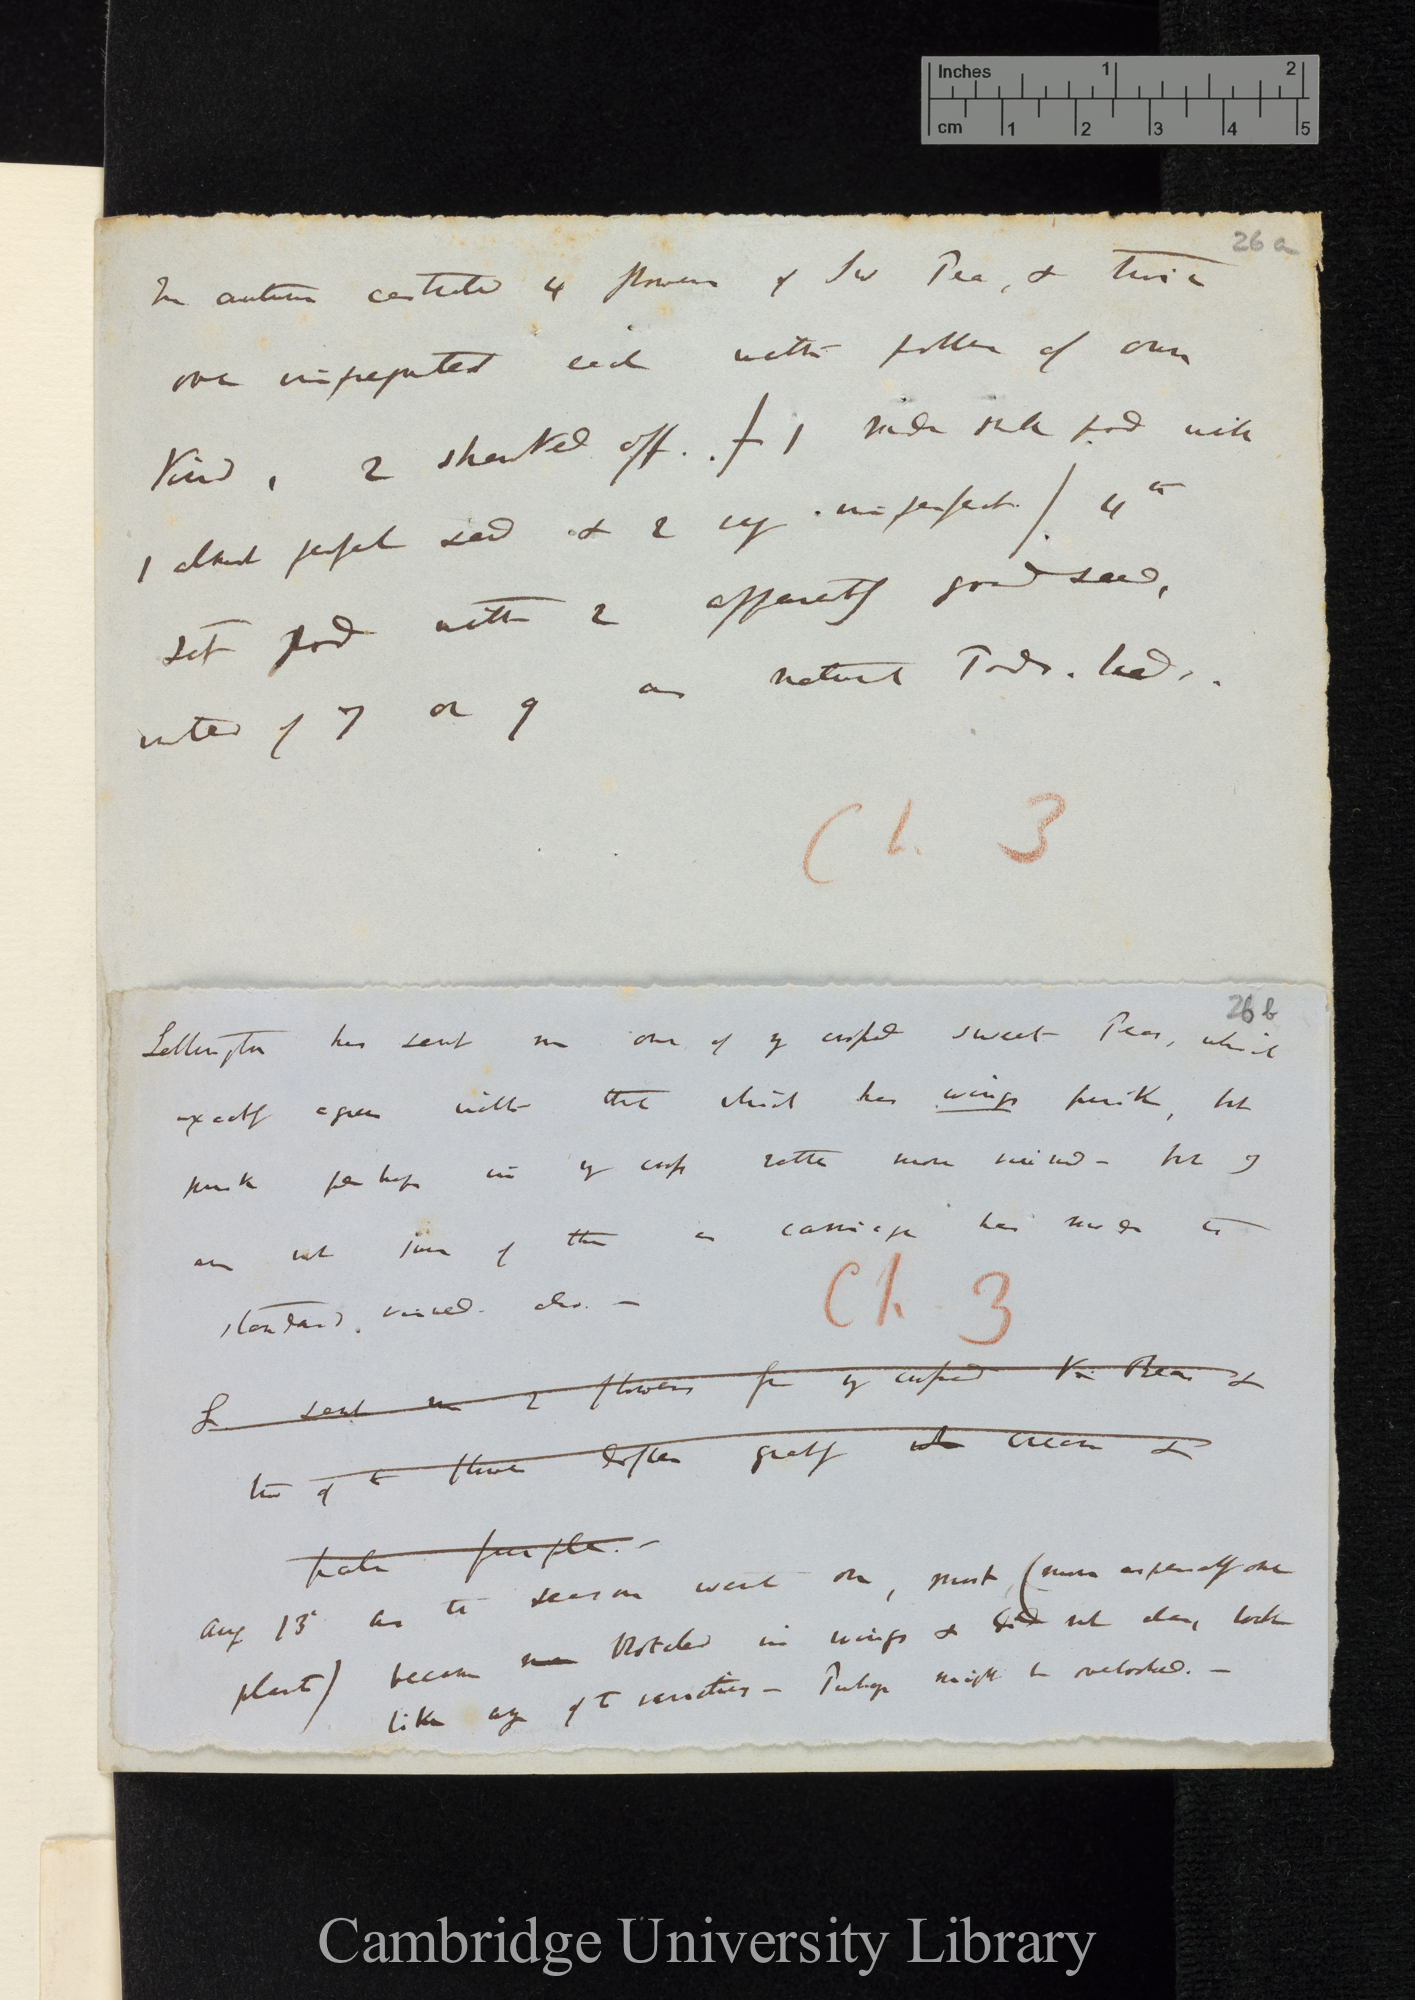 Inches 1 2
cm 1 2 3 4 5
26 a
In autumn castrated 4 flowers of Sw Pea, & twice
over impregnated each with pollen of own
kind, 2 shanked off. / 1 made pod with
1 almost perfect seed & 2 very imperfect. / 4th
set pod with 2 apparently good seed,
instead of 7 or 9 as natural Pods. had.
Ch. 3
26 b
Lettington has sent me one of yᵉ crossed sweet Peas, which
exactly agrees with that which has wings pink, but
pink perhaps in yᵉ cross rather more veined – but I
am not sure of this as carriage has made the
standard. veined. also. –
Ch. 3
L. sent me 2 flowers from yᵉ crossed Peas &
two of the flowers differ greatly cream &
pale purple. –
Aug 15 as the season went on, most, (more especially one
plant) became blotched in wings & did not look
like any of the varieties – Perhaps might be overlooked. –
Cambridge University Library